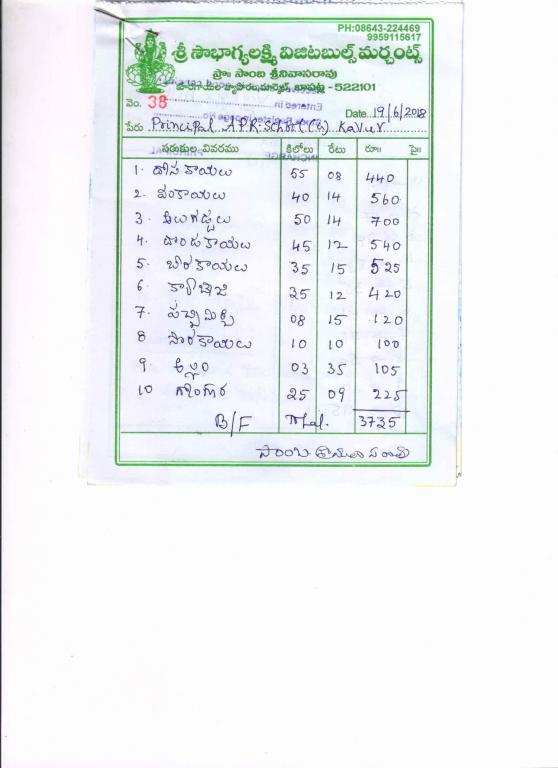 PH:08643-224469
9959115617
శ్రీ సౌభాగ్యలక్ష్మి విజిటబుల్స్ మర్చంట్స్
ప్రొః సాంబ శ్రీనివాసరావు
బాపట్ల -522101
నెం. 38
Date 19/6/2018
పేరు Principal A.P.R. School (B) Kavur
సరుకుల వివరము కిలోలు రేటు రూ॥ పై॥
1. దోసకాయలు 55 08 440
2. వంకాయలు 40 14 560
3. ఆలుగడ్డలు 50 14 700
4. దొండకాయలు 45 12 540
5. బీరకాయలు 35 15 525
6. క్యాబేజి 35 12 420
7. పచ్చిమిర్చి 08 15 120
8 సొరకాయలు 10 10 100
9. అల్లం 03 35 105
10 గోంగూర 25 09 225
B/F Total. 3735